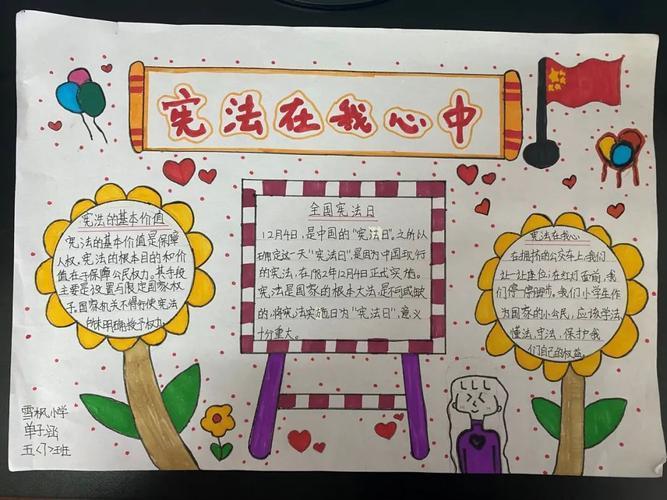 宪法在我心中
宪法的基本价值
宪法的基本价值是保障
人权,宪法的根本目的和价
值在于保障公民权力。其手段
主要是设置与限定国家权
力,国家机关不得行使宪法
所未明确授予权力。
全国宪法日
12月4日,是中国的“宪法日”。之所以
确定这一天“宪法日”,是因为中国现行
的宪法,在1982年12月4日正式实施。
宪法是国家的根本大法,是不可或缺
的,将宪法实施日为“宪法日”,意义
十分重大。
宪法在我心
在拥挤的公交车上,我们
让一让座位;在红灯面前,我
们停一停脚步。我们小学生作
为国家的小公民,应该学法,
懂法,守法,保护我
们自己的权益。
雪枫小学
单子涵
五〈1〉班